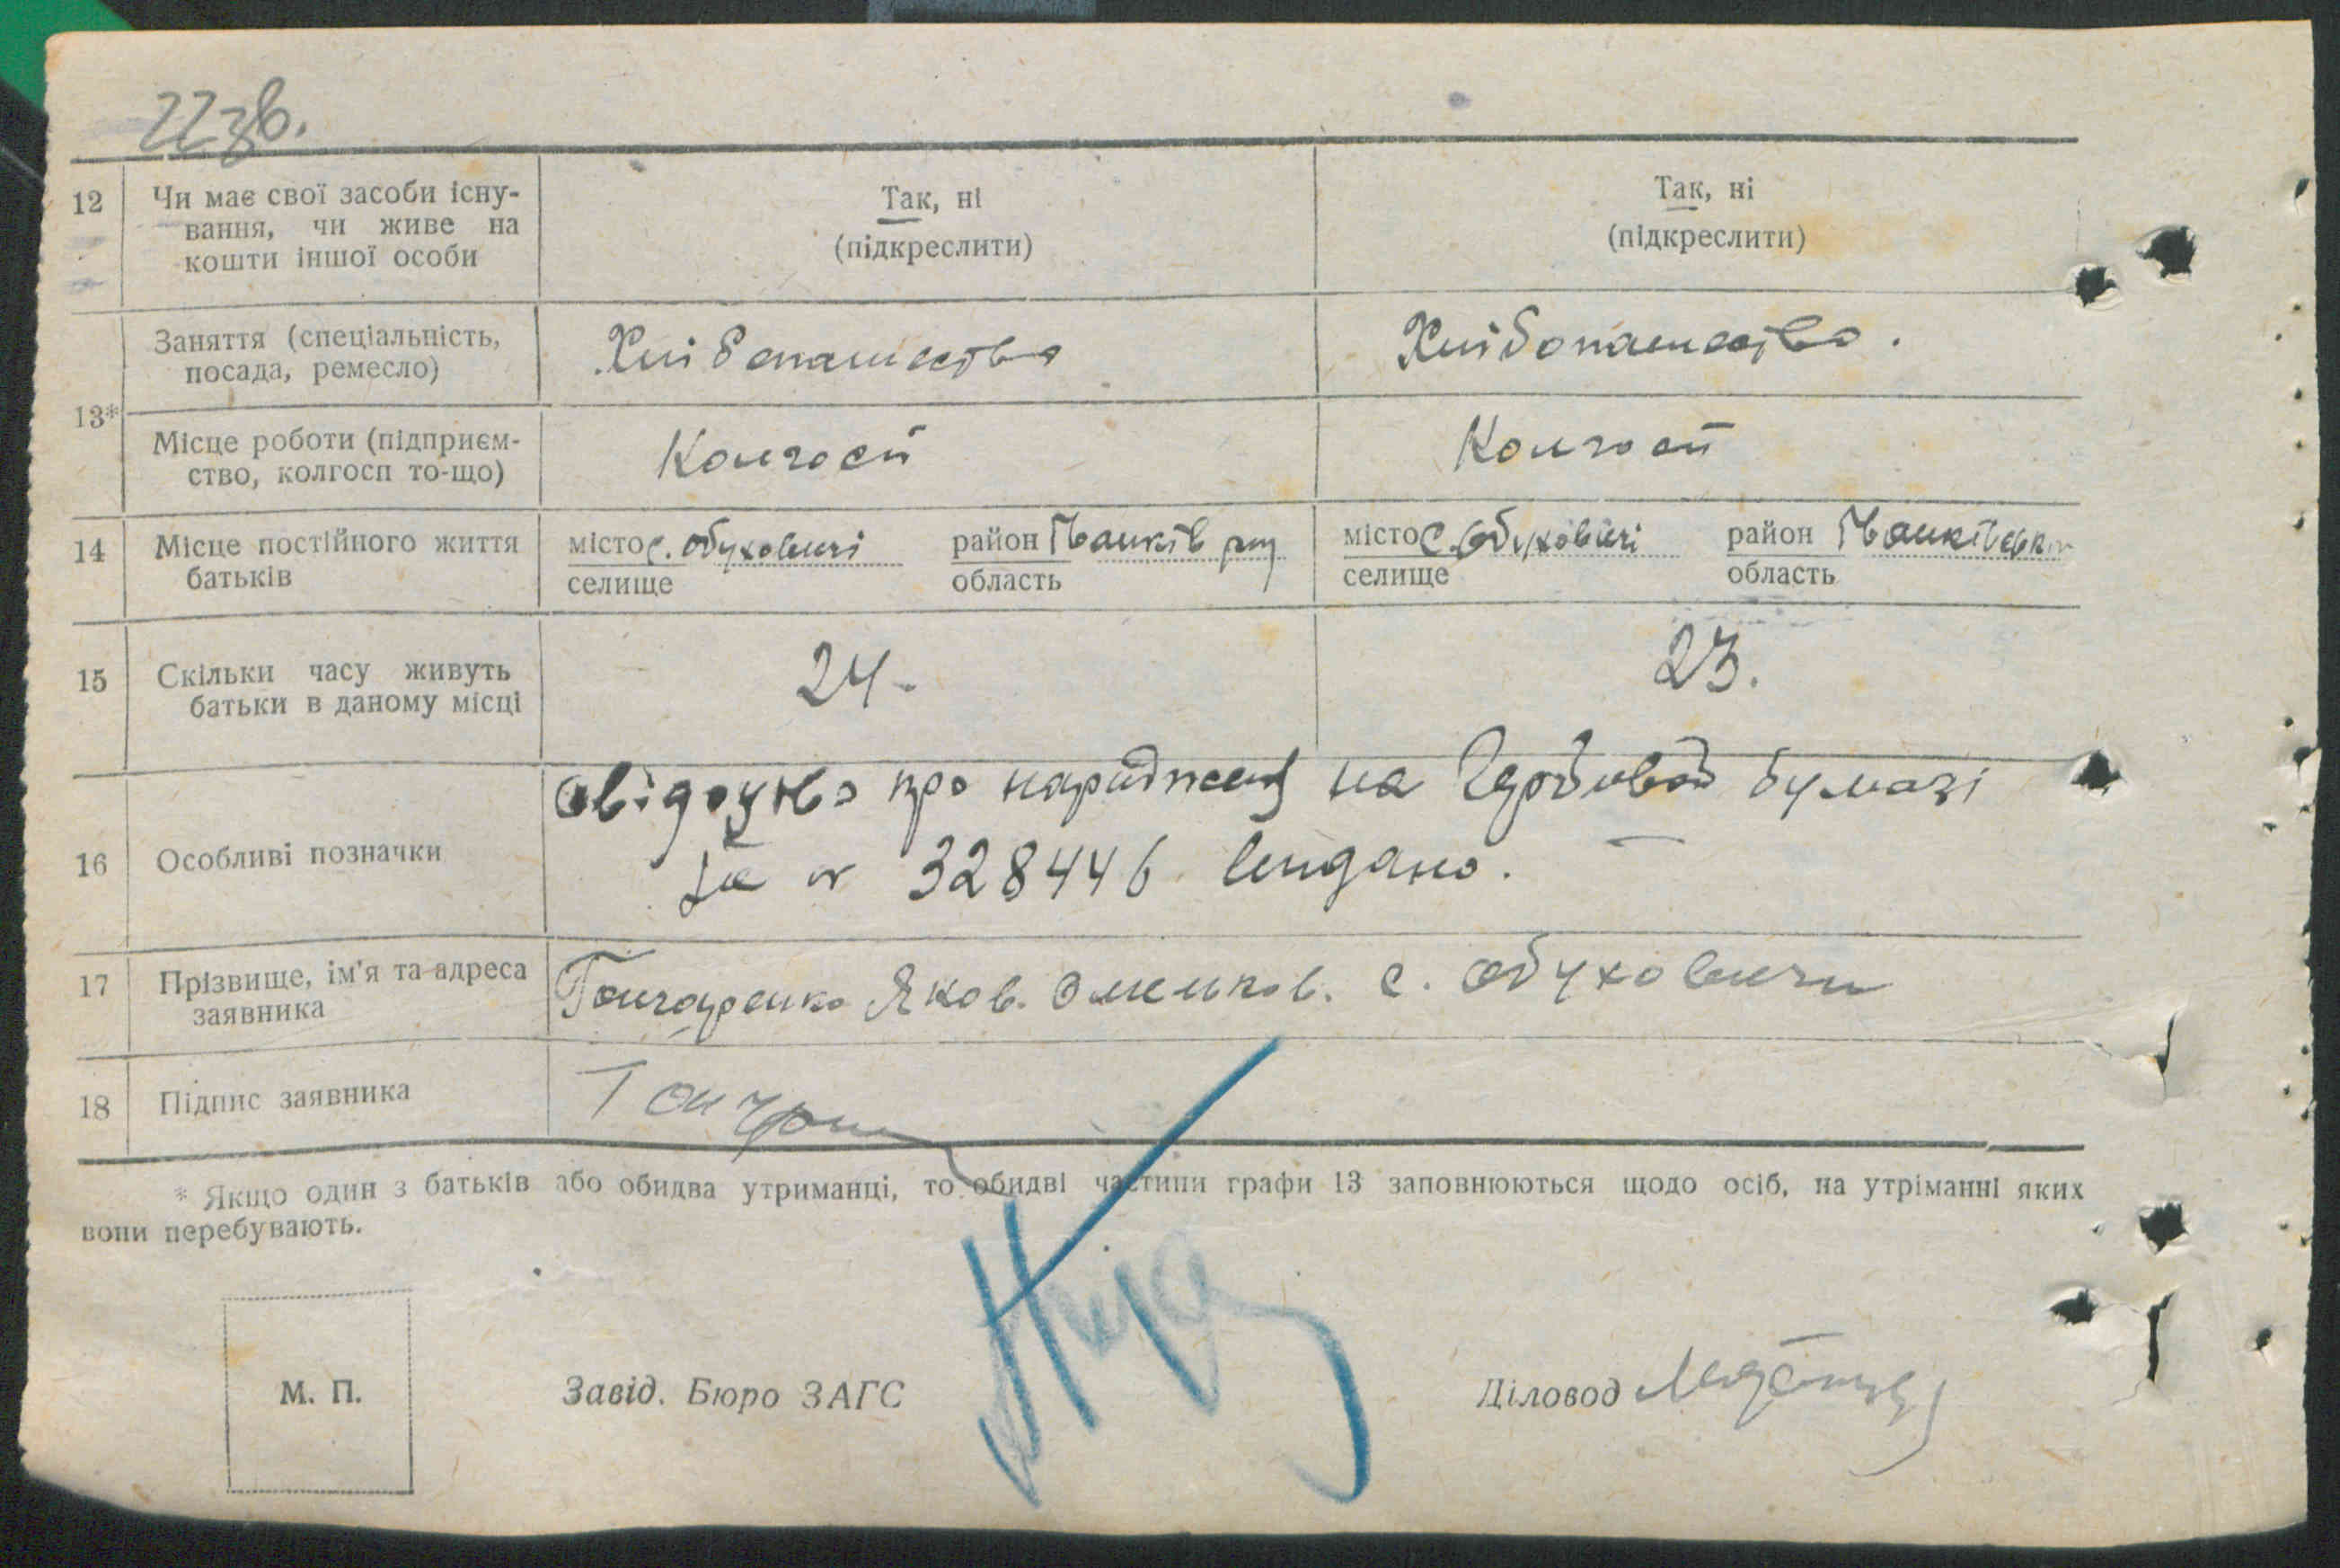 22зв.
12 Чи має свої засоби існу- Так, ні Так, ні
вання, чи живе на (підкреслити) (підкреслити)
кошти іншої особи
13* Заняття (спеціальність, Хлібопашество Хлібопашество.
посада, ремесло)
Місце роботи (підприєм- Колгосп Колгосп
ство, колгосп то-що)
14 Місце постійного життя місто с. Обуховичі район Іванків місто с. Обуховичі район Іванківськ
батьків селище область селище область
15 Скільки часу живуть 24- 23.
батьки в даному місці
16 Особливі позначки
про на Гербовой бумазі
328446 видано.
17 Прізвище, ім'я та адреса Гончаренко Яков. с. Обуховичи
заявника
18 Підпис заявника
* Якщо один з батьків або обидва утриманці, то обидві частини графи 13 заповнюються щодо осіб, на утріманні яких
вони перебувають.
М. П. Завід. Бюро ЗАГС Діловод